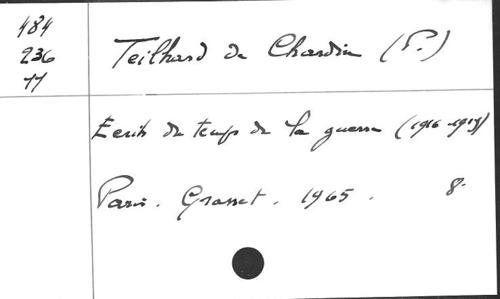 484
236
11
Teilhard de Chardin (P.)
Ecrits du temps de la guerre (1916-1919)
Paris. Grasset. 1965. 8°